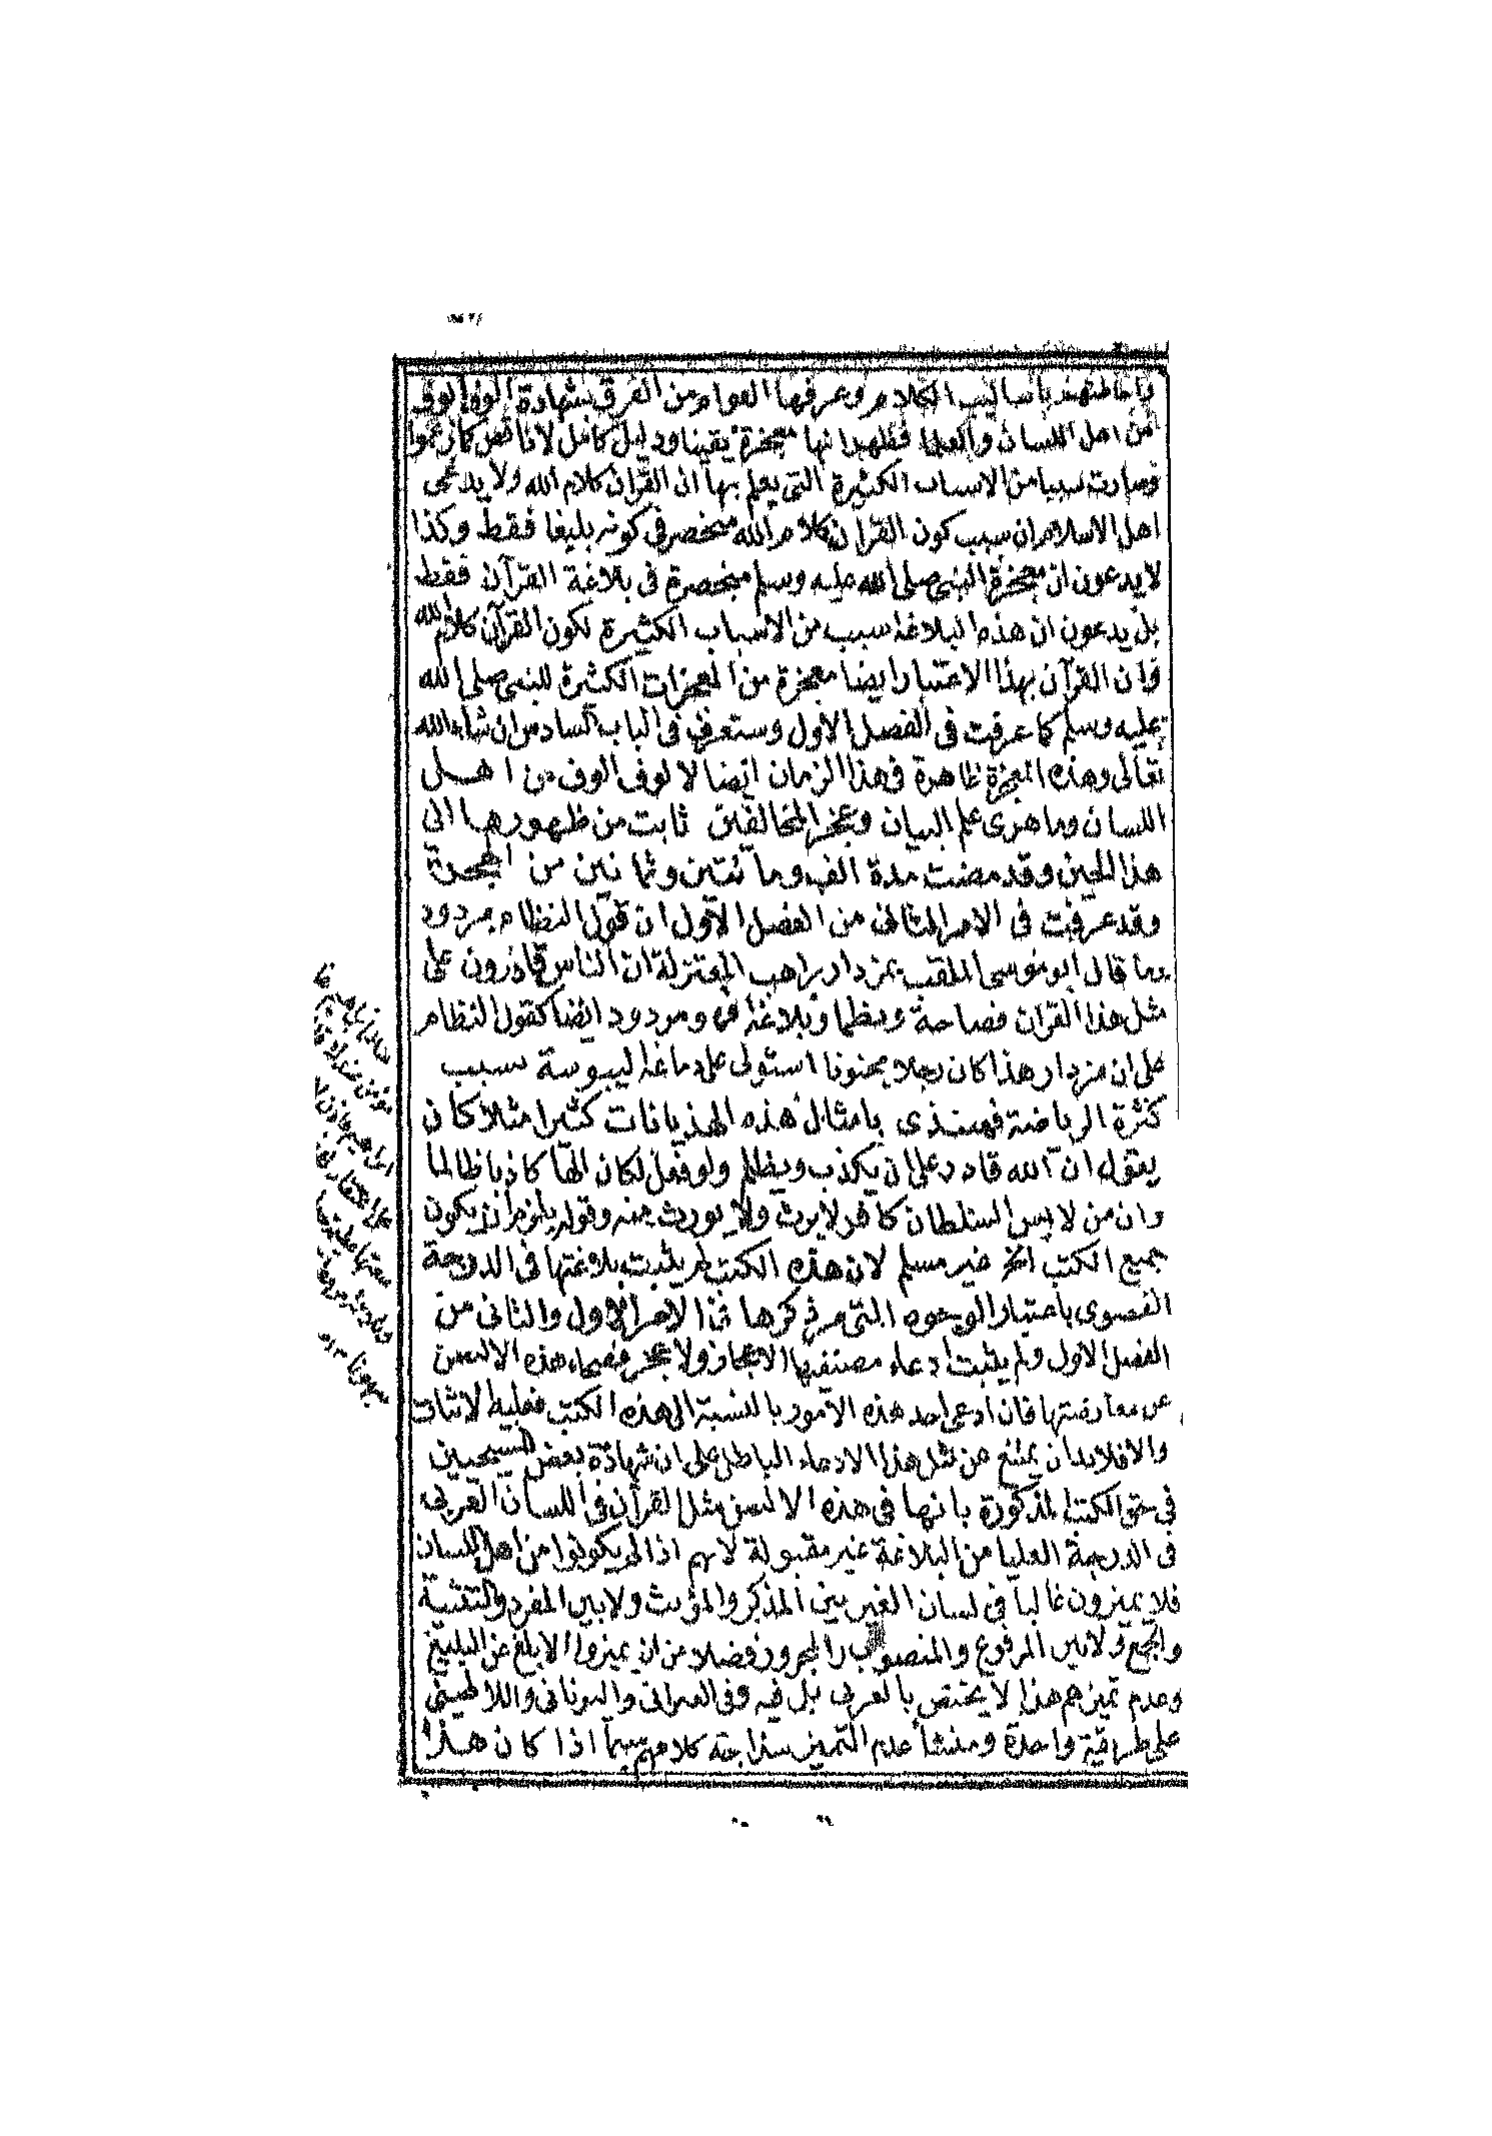 باحاطتهم باساليب الكلام وعرفها العوام من الفرق بشهادة الوف الوف
من اهل اللسان والعلماء فظهر انها معجزة يقينا ودليل كامل لا ناقص كما زعموا
فصارت سببا من الاسباب الكثيرة التى يعلم بها ان القرآن كلام الله ولا يدعى
اهل الاسلام ان سبب كون القرآن كلام الله منحصر فى كونه بليغا فقط وكذا
لا يدعون ان معجزة النبى صلى الله عليه وسلم منحصرة فى بلاغة القرآن فقط
بل يدعون ان هذه البلاغة سبب من الاسباب الكثيرة لكون القرآن كلام الله
وان القرآن بهذا الاعتبار ايضا معجزة من المعجزات الكثيرة للنبى صلى الله
عليه وسلم كما عرفت فى الفصل الاول وستعرف فى الباب السادس ان شاء الله
تعالى وهذه المعجزة ظاهرة فى هذا الزمان ايضا لالوف الوف من اهل
اللسان وماهرى علم البيان وعجز المخالفين ثابت من ظهورها الى
هذا الحين وقد مضت مدة الف ومأتين وثمانين من الهجرة
وقد عرفت فى الامر الثانى من الفصل الاول ان قول النظام مردود
وما قال ابو موسى الملقب بمزدار راهب المعتزلة ان الناس قادرون على
مثل هذا القرآن فصاحة ونظما وبلاغة فهو مردود ايضا كقول النظام
على ان مزدار هذا كان رجلا مجنونا استولى على دماغه اليبوسة بسبب
كثرة الرياضة فهذى بامثال هذه الهذيانات كثيرا مثلا كان
يقول ان الله قادر على ان يكذب ويظلم ولو فعل لكان الها كاذبا ظالما
وان من لابس السلطان كافر لا يرث ولا يورث منه وقوله يلزم ان يكون
جميع الكتب الخ غير مسلم لان هذه الكتب لم يثبت بلاغتها فى الدرجة
القصوى باعتبار الوجوه التى مر ذكرها فى الامر الاول والثانى من
الفصل الاول ولم يثبت ادعاء مصنفيها الاعجاز ولا عجز فصحاء هذه الالسن
عن معارضتها فان ادعى احد هذه الامور بالنسبة الى هذه الكتب فعليه الاثبات
والا فلا بد ان يمتنع عن مثل هذا الادعاء الباطل على ان شهادة بعض المسيحيين
فى حق الكتب المذكورة بانها فى هذه الالسن مثل القرآن فى اللسان العربى
فى الدرجة العليا من البلاغة غير مقبولة لانهم اذا لم يكونوا من اهل اللسان
فلا يميزون غالبا فى لسان الغير بين المذكر والمؤنث ولا بين المفرد والتثنية
والجمع ولا بين المرفوع والمنصوب والمجرور فضلا من ان يميزوا الابلغ عن البليغ
وعدم تميزهم هذا لا يختص بالعربى بل فيه وفى العبرانى واليونانى واللاطينى
على طريقة واحدة ومنشأ عدم التميز سذاجة كلامهم سيما اذا كان هذا